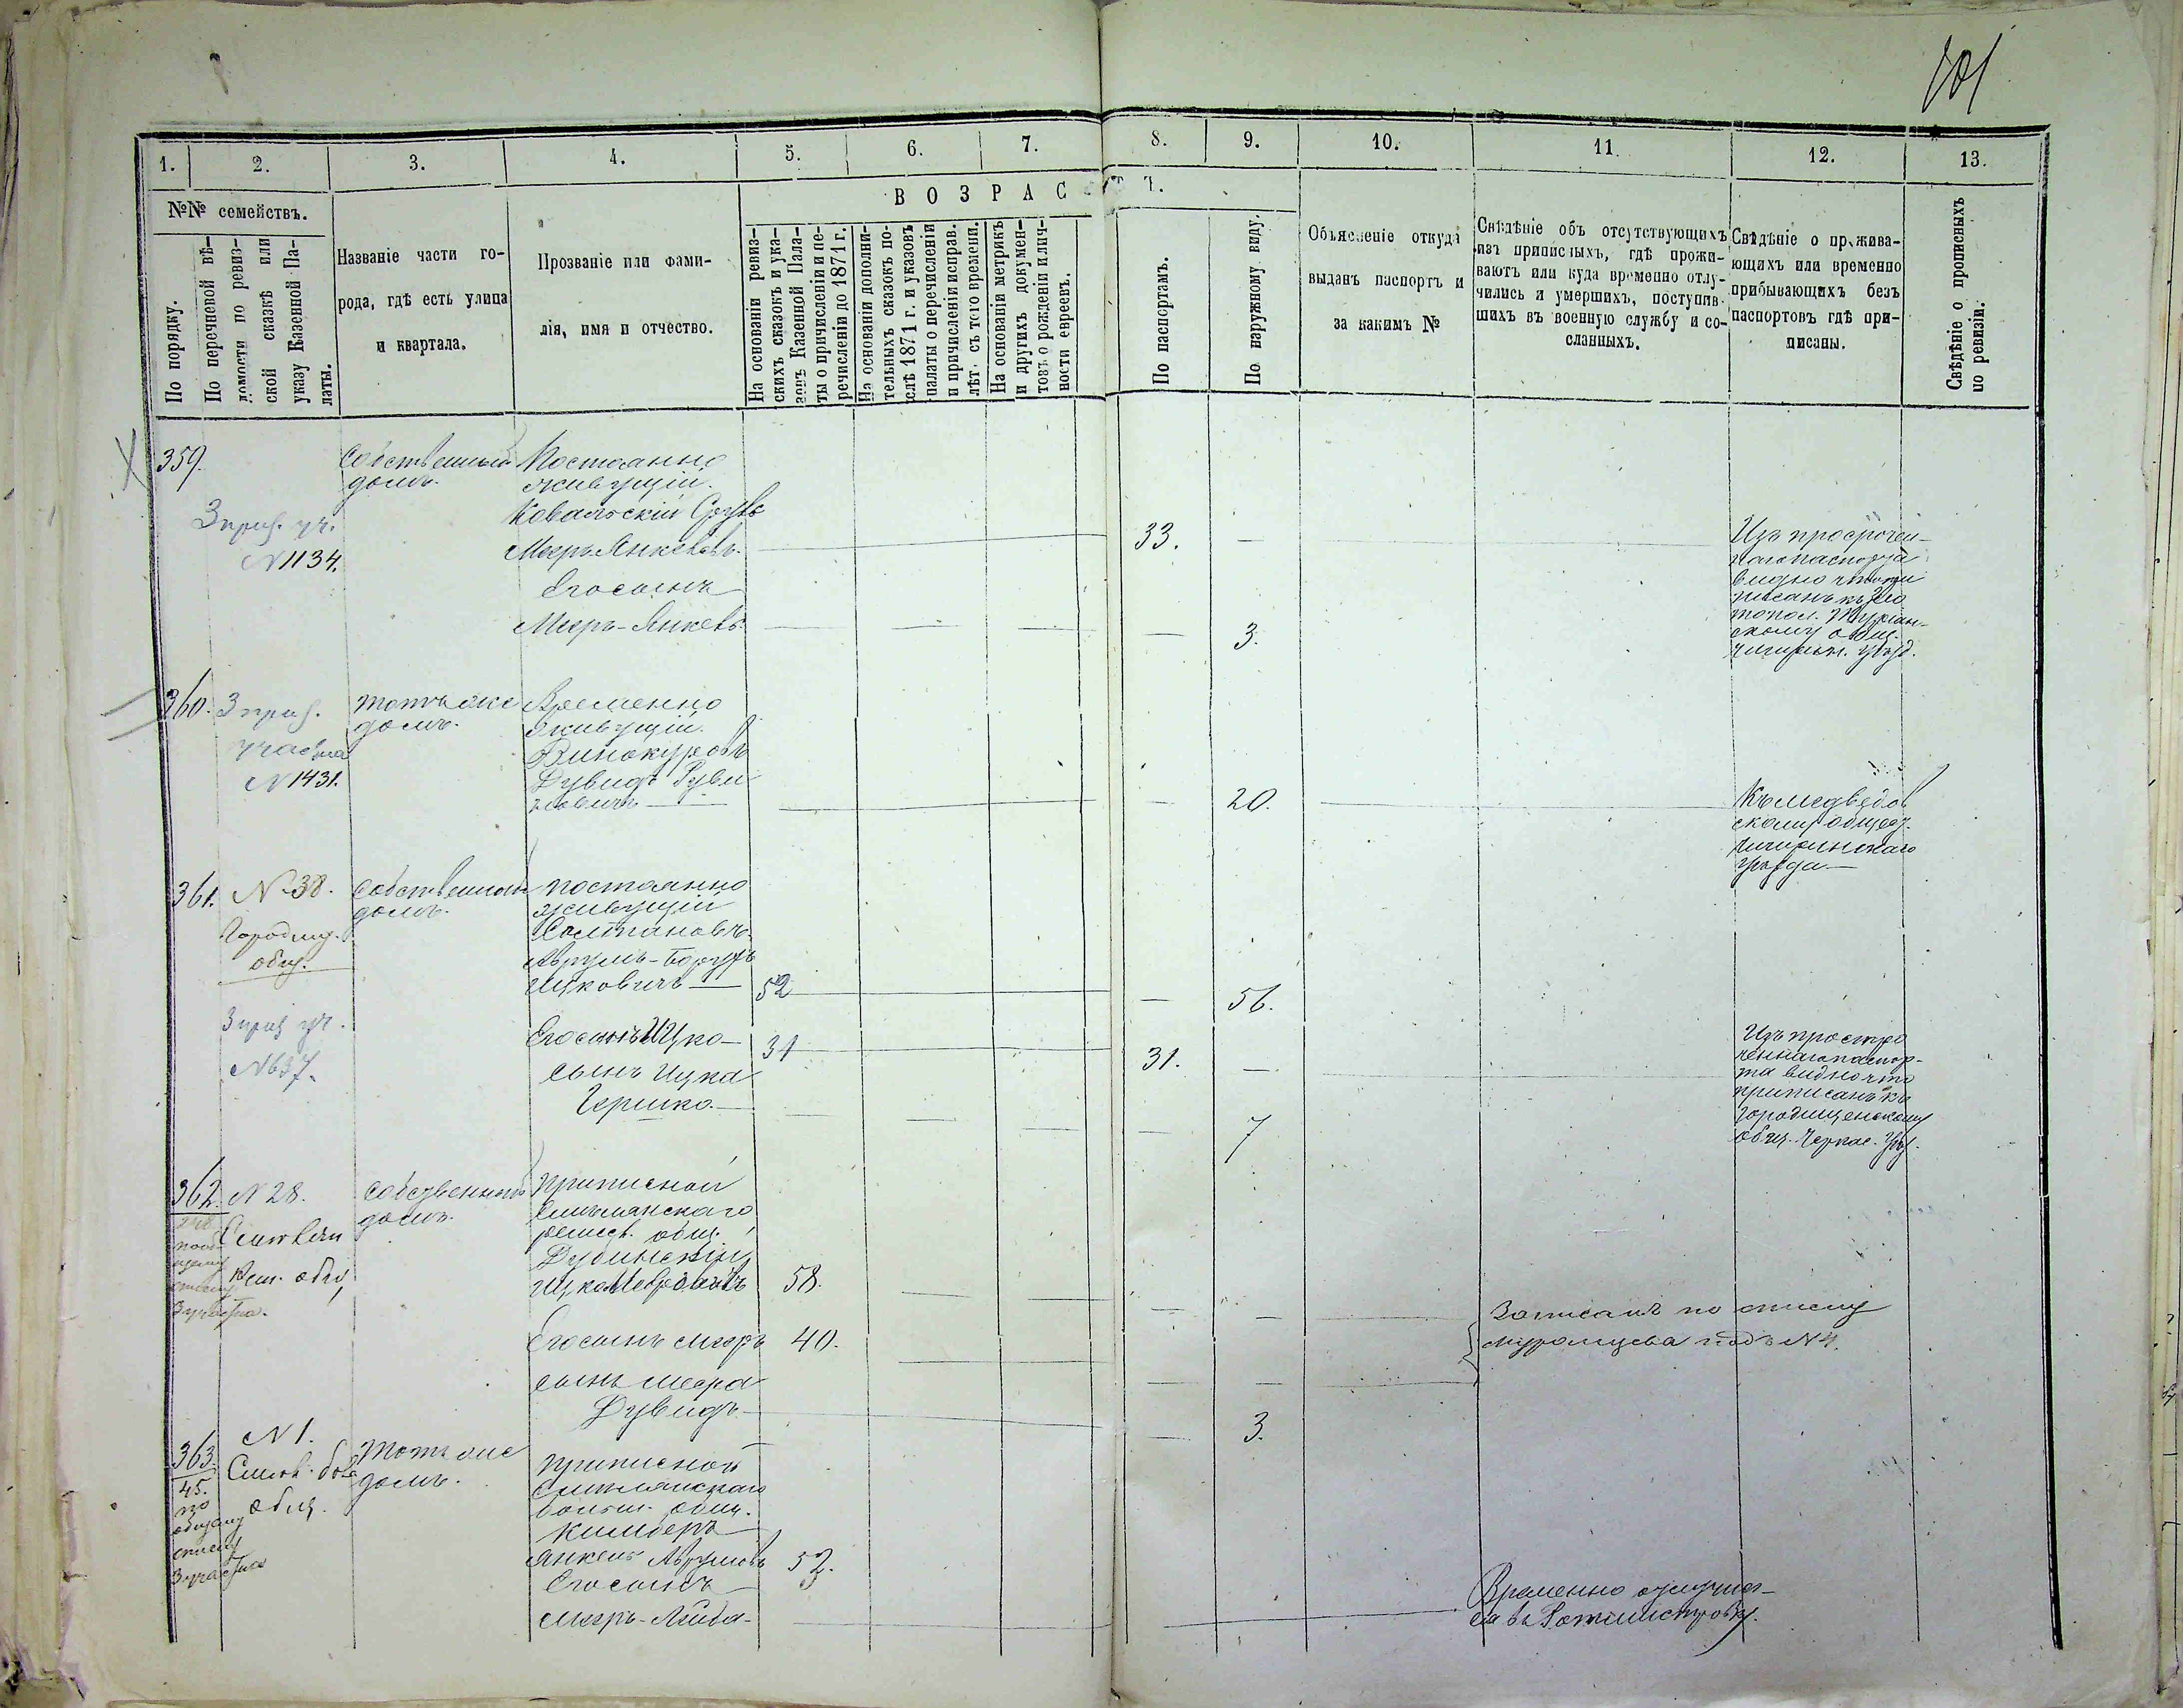 101
1. 2. 3. 4. 5. 6. 7. 8. 9. 10. 11. 12. 13.
№№ семействъ.
По порядку.
По перечневой вѣ-
домости по ревиз-
ской сказкѣ или
указу Казенной Па-
латы.
Названіе части го-
рода, гдѣ есть улица
и квартала.
Прозваніе или фами-
лія, имя и отчество.
ВОЗРАСТЪ.
На основаніи ревиз-
скихъ сказокъ и ука-
зовъ Казенной Пала-
ты о причисленіи и пе-
речисленіи до 1871 г.
На основаніи дополни-
тельныхъ сказокъ по-
слѣ 1871 г. и указовъ
палаты о перечисленіи
и причисленіи исправ.
лѣт. съ того времени.
На основаніи метрикъ
и другихъ докумен-
товъ о рожденіи и лич-
ности евреевъ.
По паспортамъ.
По наружному виду.
Объясненіе откуда
выданъ паспортъ и
за какимъ №
Свѣдѣніе объ отсутствующихъ
изъ приписныхъ, гдѣ прожи-
ваютъ или куда временно отлу-
чились и умершихъ, поступив-
шихъ въ военную службу и со-
сланныхъ.
Свѣдѣніе о прожива-
ющихъ или временно
прибывающихъ безъ
паспортовъ гдѣ при-
писаны.
Свѣдѣніе о прописныхъ
по ревизіи.
359.
3 приз. уч.
N 1134.
Собственный
домъ.
Постоянно
живущій.
Ковальскій Сруль
Меръ Янкевовъ.
33. —
Его сынъ
Меръ-Янкевъ — — — — 3.
Изъ просрочен-
наго паспорта
видно что при
писанъ къ Зло
топол.
скому общ.
Чигирин. уѣзд.
360. 3 приз.
участка
N 1431.
тотъ же
домъ.
Временно
живущій.
Винокуровъ
Дувидъ Руви
новичъ — — 20.
Къ Медведов
скому общес.
Чигиринскаго
уѣзда —
361. N 38.
Городищ.
общ.
3 приз уч.
N 637.
Собственный
домъ.
постоянно
живущій
Солтановъ
Аврумъ-Борухъ
Ицковичъ — 52 — 56.
Его сынъ Ицко — 31 31. —
сынъ Ицка
Гершко. — — — — — 7
Изъ просро
ченнаго паспор-
та видно что
приписанъ къ
Городищенскому
общ. Черкас. уѣз.
362. N 28.
Рем. общ,
3 участка.
Собственный
домъ.
приписной
Смѣлянскаго
ремесл. общ.
Дубинскій
Ицко 58. — — — —
Его сынъ Меръ 40. —
сынъ Меера
Дувидъ — — 3.
Записанъ по списку
Муромцева подъ N 4.
363.
45.
по
общему
списку
3 участка
N 1.
Смѣл.
общ.
Тотъ же
домъ.
приписной
Смѣлянскаго
больш. общ.
Кимберъ
Янкель Аврумовъ 52.
Его сынъ
Меръ-Лейба-
Временно отлучил-
ся въ Ротмистровку.